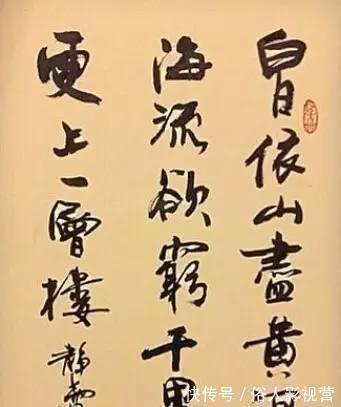 白日依山盡黃
海流欲窮千里
更上一層樓 靜
快传号 / 俗人影视营